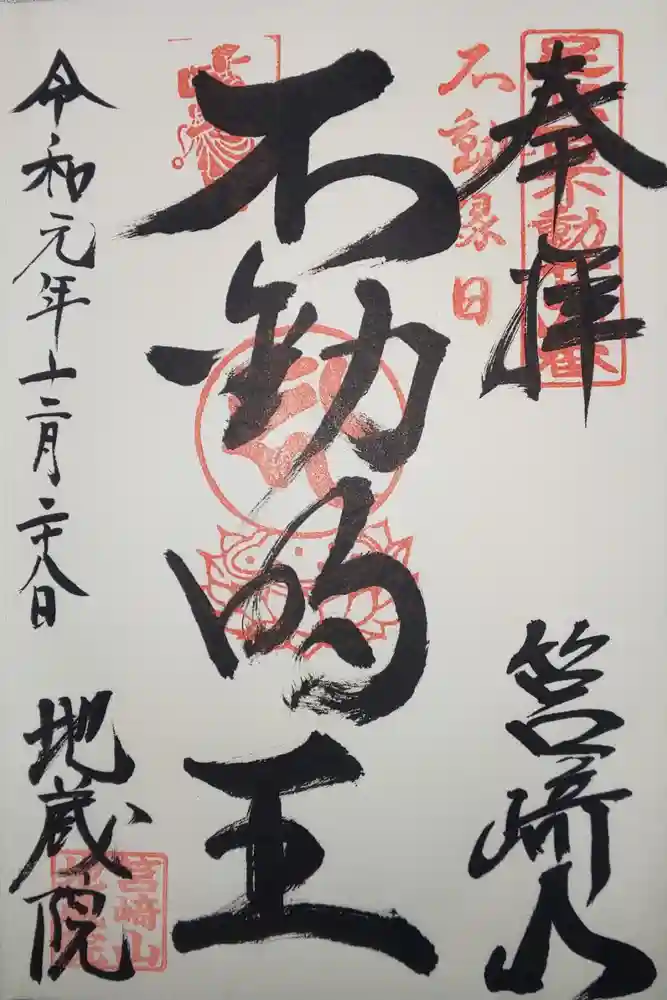 奉拝
筥崎山
不動縁日
不動明王
令和元年十二月二十八日
地蔵院
筥崎山
地蔵院